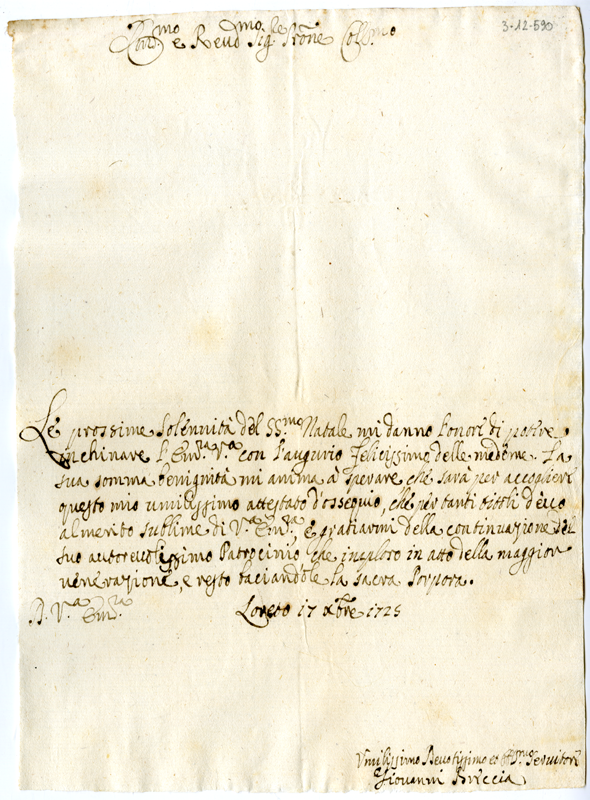 3-12-590
Em.mo e Rev.mo Sig.re Prone Col.mo
Le prossime Solennità del SS.mo Natale mi danno l'onore di potere
inchinare l'Em.za V.a con l'augurio felicissimo delle medeme. La
sua somma benignità mi anima à sperare, che sarà per accogliere
questo mio umilissimo attestato d'ossequio, che per tanti titoli devo
al merito sublime di V.a Em.za, e gratiarmi della continuazione del
suo autorevolissimo Patrocinio che imploro in atto della maggior
venerazione, e resto baciandole la sacra Porpora.
D. V.a Em.za
Loreto 17 Xbre 1725
Vmilissimo Devotissimo et Servitore
Giovanni Breccia